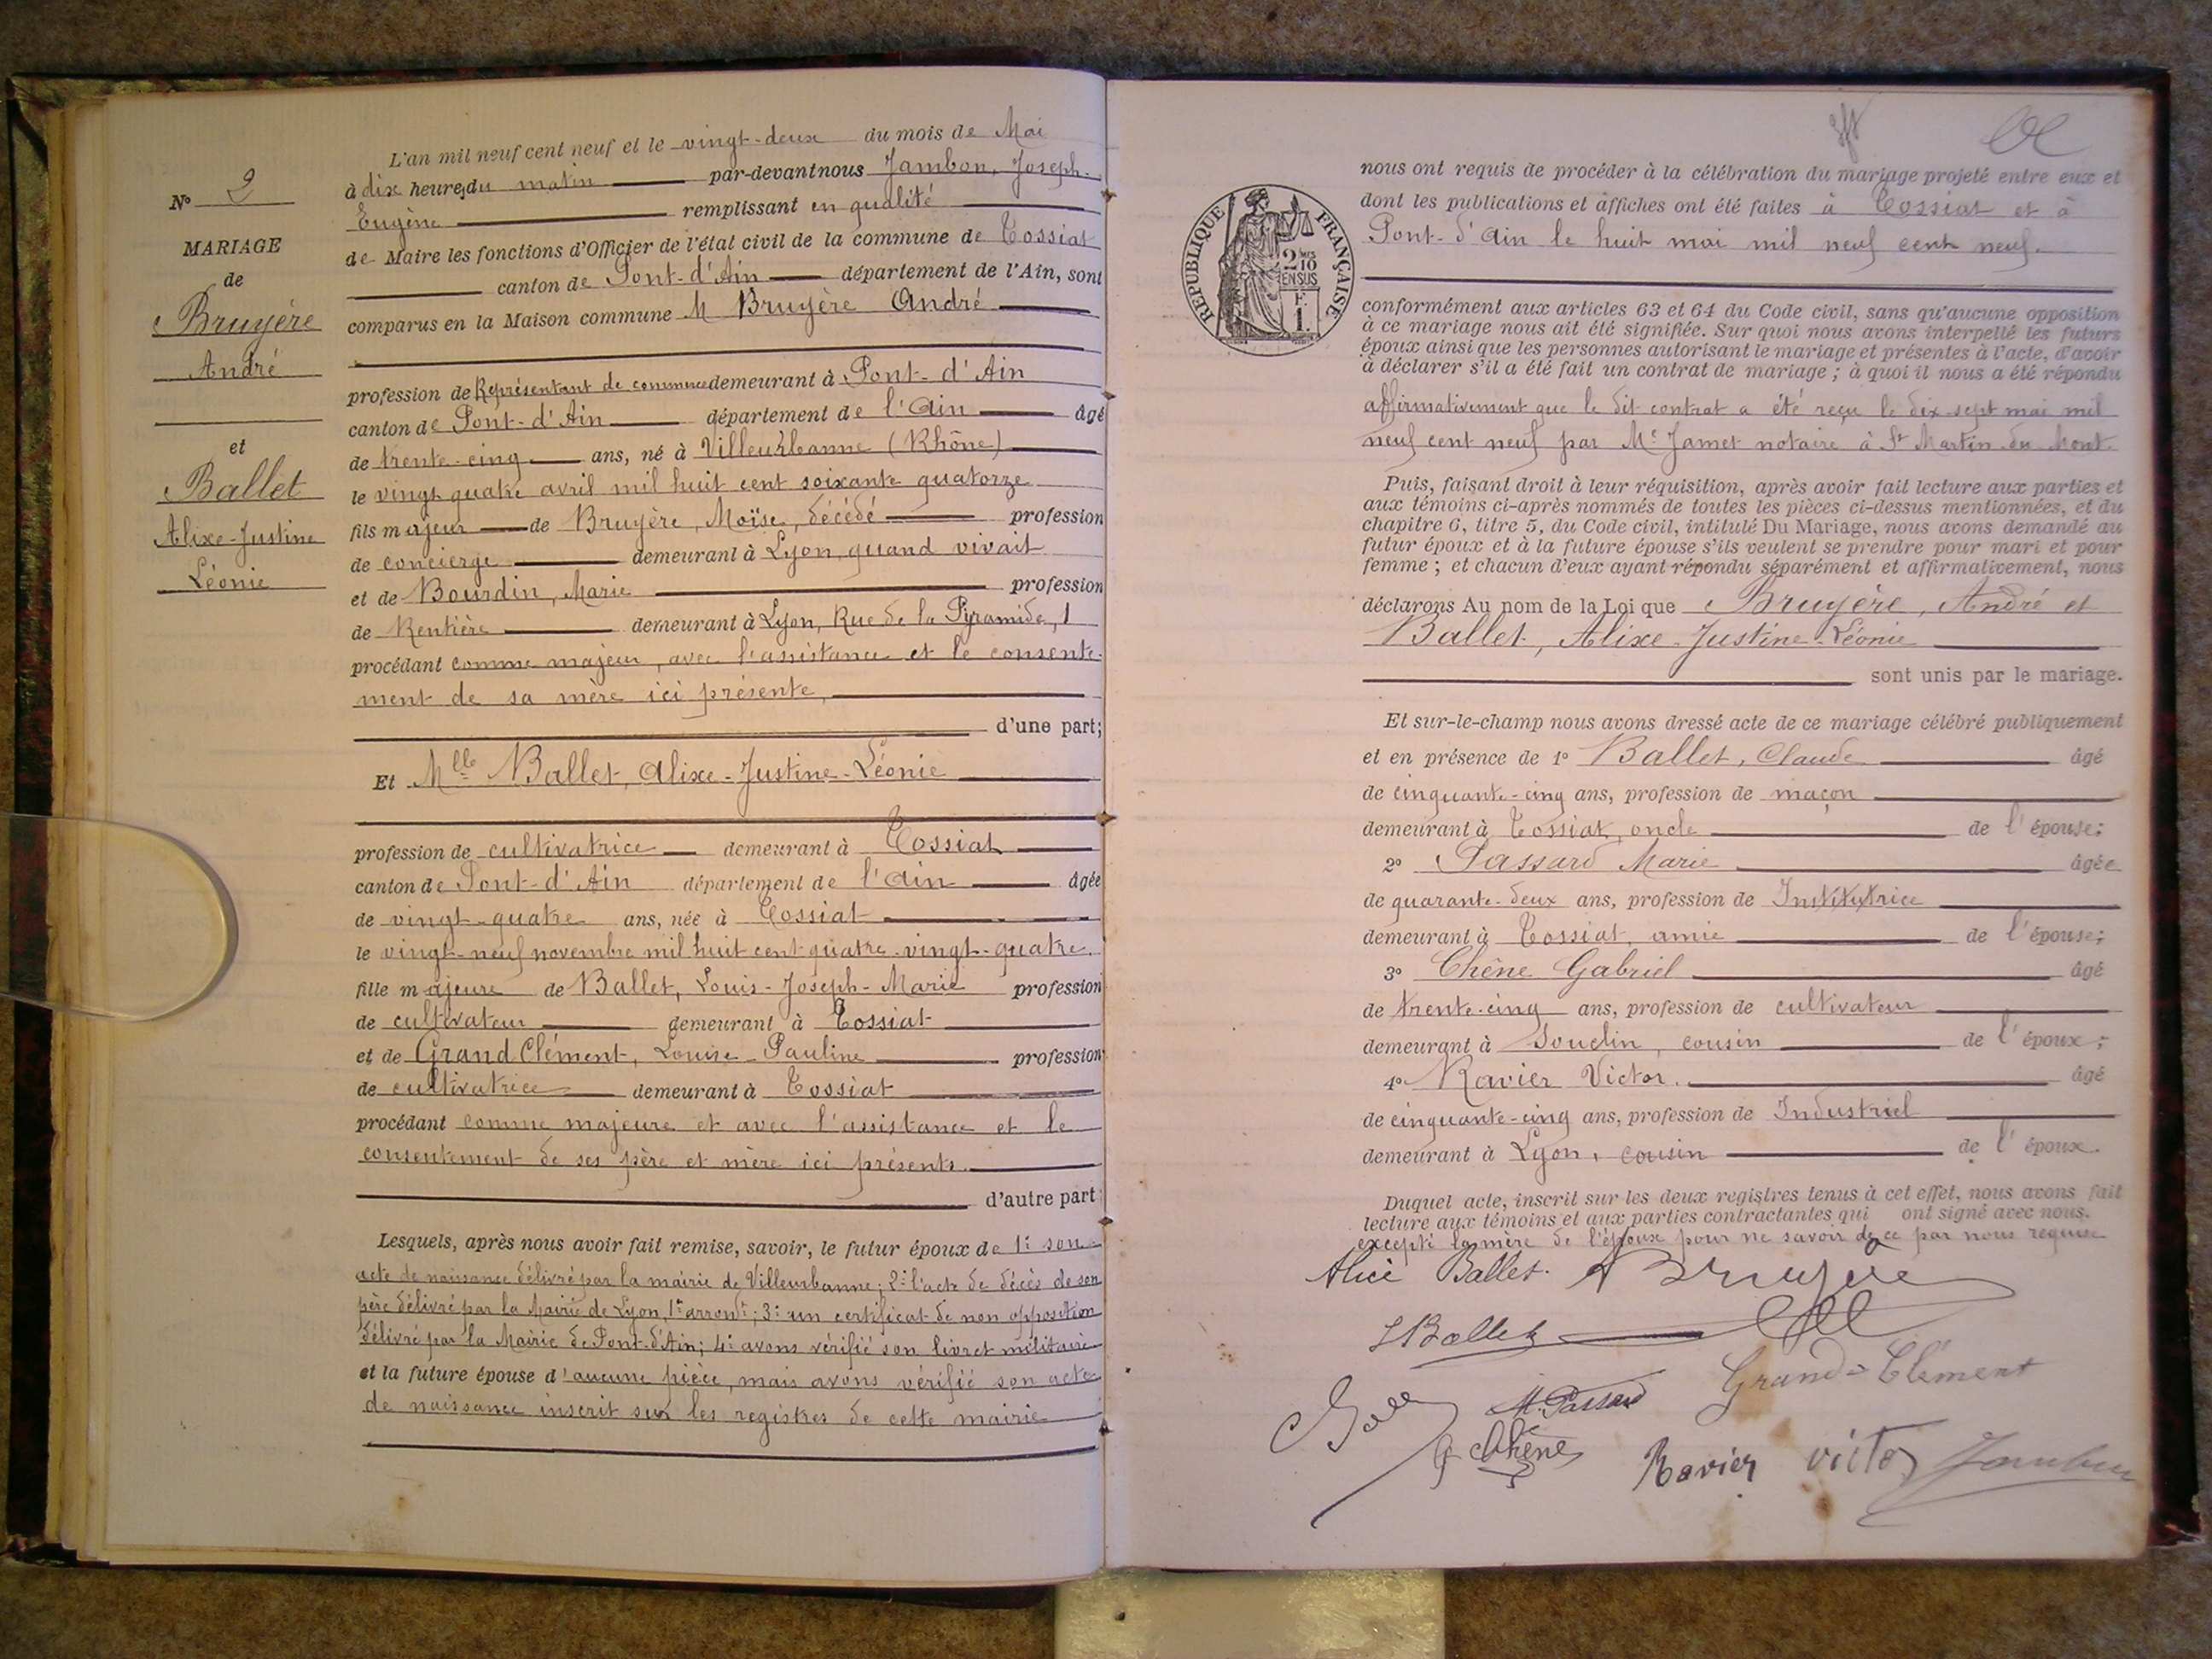 N° 2
MARIAGE
de
Bruyère
André
et
Ballet
Alixe-Justine
Léonie
L'an mil neuf cent neuf et le vingt-deux du mois de Mai
à dix heures du matin par-devant nous Jambon, Joseph-
Eugène remplissant en qualité
de Maire les fonctions d'Officier de l'état civil de la commune de Tossiat
canton de Pont-d'Ain département de l'Ain, sont
comparus en la Maison commune M Bruyère André
profession de Représentant de commerce demeurant à Pont-d'Ain
canton de Pont-d'Ain département de l'Ain âgé
de trente-cinq ans, né à Villeurbanne (Rhône)
le vingt quatre avril mil huit cent soixante quatorze
fils majeur de Bruyère, Moïse, décédé profession
de concierge demeurant à Lyon, quand vivait
et de Bourdin, Marie profession
de Rentière demeurant à Lyon, Rue de la Pyramide, 1
procédant comme majeur, avec l'assistance et le consente-
ment de sa mère ici présente,
d'une part;
Et Mlle Ballet, Alixe-Justine-Léonie
profession de cultivatrice demeurant à Tossiat
canton de Pont-d'Ain département de l'Ain âgée
de vingt-quatre ans, née à Tossiat
le vingt-neuf novembre mil huit cent quatre-vingt-quatre.
fille majeure de Ballet, Louis-Joseph-Marie profession
de cultivateur demeurant à Tossiat
et de Grand Clément, Louise-Pauline profession
de cultivatrice demeurant à Tossiat
procédant comme majeure et avec l'assistance et le
consentement de ses père et mère ici présents.
d'autre part
Lesquels, après nous avoir fait remise, savoir, le futur époux de 1° son
acte de naissance délivré par la mairie de Villeurbanne; 2° l'acte de décès de son
père délivré par la Mairie de Lyon, 1er arront; 3° un certificat de non opposition
délivré par la Mairie de Pont-d'Ain; 4° avons vérifié son livret militaire
et la future épouse d'aucune pièce, mais avons vérifié son acte
de naissance inscrit sur les registres de cette mairie
REPUBLIQUE FRANÇAISE
2 MES 10
EN SUS
F.
1.
nous ont requis de procéder à la célébration du mariage projeté entre eux et
dont les publications et affiches ont été faites à Tossiat et à
Pont-d'Ain le huit mai mil neuf cent neuf.
conformément aux articles 63 et 64 du Code civil, sans qu'aucune opposition
à ce mariage nous ait été signifiée. Sur quoi nous avons interpellé les futurs
époux ainsi que les personnes autorisant le mariage et présentes à l'acte, d'avoir
à déclarer s'il a été fait un contrat de mariage; à quoi il nous a été répondu
affirmativement que le dit contrat a été reçu le dix-sept mai mil
neuf cent neuf par Me Jamet notaire à St Martin du Mont.
Puis, faisant droit à leur réquisition, après avoir fait lecture aux parties et
aux témoins ci-après nommés de toutes les pièces ci-dessus mentionnées, et du
chapitre 6, titre 5, du Code civil, intitulé Du Mariage, nous avons demandé au
futur époux et à la future épouse s'ils veulent se prendre pour mari et pour
femme; et chacun d'eux ayant répondu séparément et affirmativement, nous
déclarons Au nom de la Loi que Bruyère, André et
Ballet, Alixe-Justine-Léonie
sont unis par le mariage.
Et sur-le-champ nous avons dressé acte de ce mariage célébré publiquement
et en présence de 1° Ballet, Claude âgé
de cinquante-cinq ans, profession de maçon
demeurant à Tossiat, oncle de l'épouse;
2° Passard Marie âgée
de quarante-deux ans, profession de Institutrice
demeurant à Tossiat, amie de l'épouse;
3° Chêne Gabriel âgé
de trente-cinq ans, profession de cultivateur
demeurant à Souclin, cousin de l'époux;
4° Ravier Victor. âgé
de cinquante-cinq ans, profession de Industriel
demeurant à Lyon, cousin de l'époux.
Duquel acte, inscrit sur les deux registres tenus à cet effet, nous avons fait
lecture aux témoins et aux parties contractantes qui ont signé avec nous.
excepté la mère de l'époux pour ne savoir de ce par nous requise
Alice Ballet. A Bruyère
Ballet
Grand-Clément
M. Passard
G Chêne
Ravier Victor Jambon